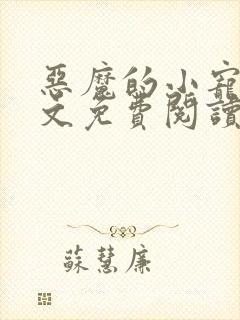 惡魔的小寵
文免費閱讀
蘇慧廉